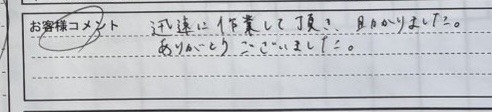 お客様コメント 迅速に作業して頂き、助かりました。
ありがとうございました。